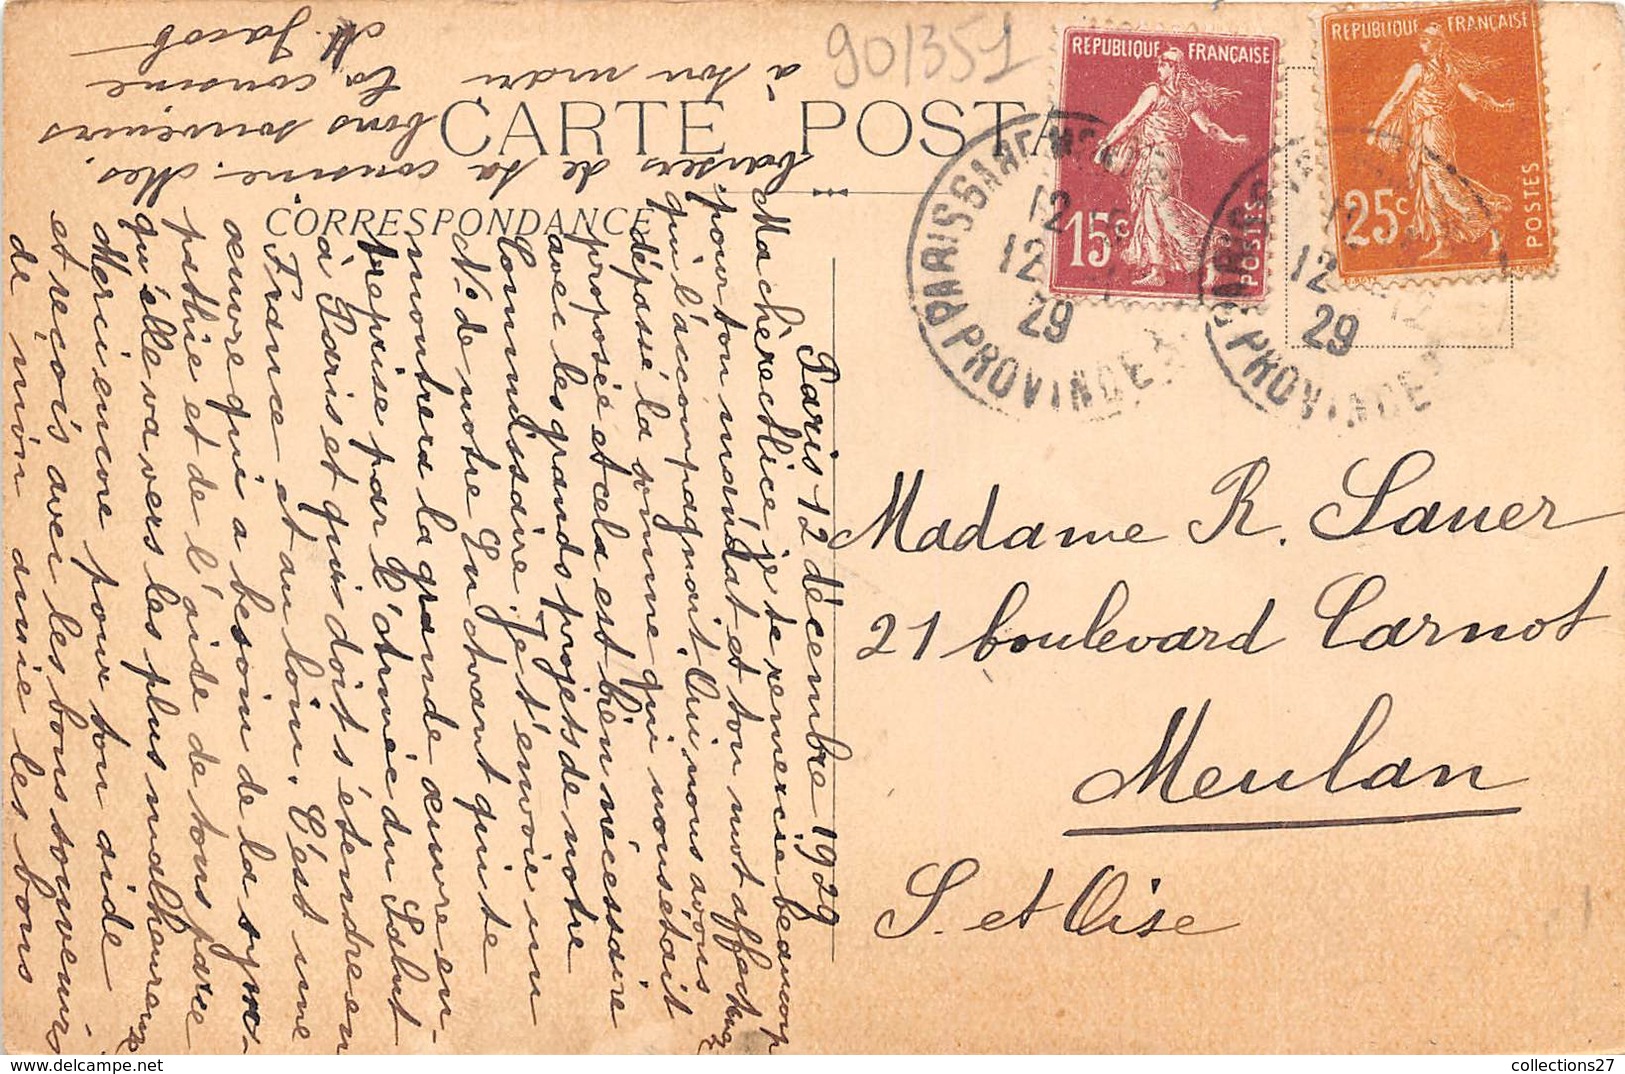 90/351
CARTE POSTA
CORRESPONDANCE
REPUBLIQUE FRANÇAISE
15c
POSTES
REPUBLIQUE FRANÇAISE
25c
POSTES
PARIS GARE MONTP
12
12
29
PROVINCE A
12
29
PROVINCE
Paris 12 décembre 1929
Ma chère Alice je te remercie beaucoup
pour ton mandat et ton mot affectueux
qui l'accompagnait. Oui nous avons
dépassé la somme qui nous était
proposée et cela est bien nécessaire
avec les grands projets de notre
Commissaire. Je t'envoie un
No de notre En avant qui te
montrera la grande œuvre en-
treprise par l'Armée du Salut
à Paris et qui doit s'étendre en
France et au loin. C'est une
œuvre qui a besoin de la sym-
pathie et de l'aide de tous parce
qu'elle va vers les plus malheureux
Merci encore pour ton aide
et reçois avec les bons souvenirs
de mon amie les bons
baisers de ta cousine. Mes
bons souvenirs
à ton mari
Ta cousine
M. Jacob
Madame R. Sauer
21 boulevard Carnot
Meulan
S. et Oise
collections27